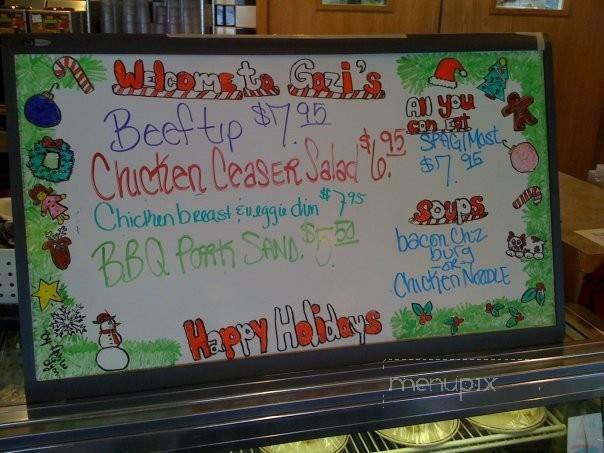 Welcome to Gozi's
Beef tip $7.95
Chicken Ceaser Salad $6.95
Chicken breast & veggie din $7.95
BBQ Pork Sand. $5.50
Happy Holidays
All you
can Eat
SPAG/Most
$7.95
Soups
bacon Chz
burg
or
Chicken Noodle
menupix